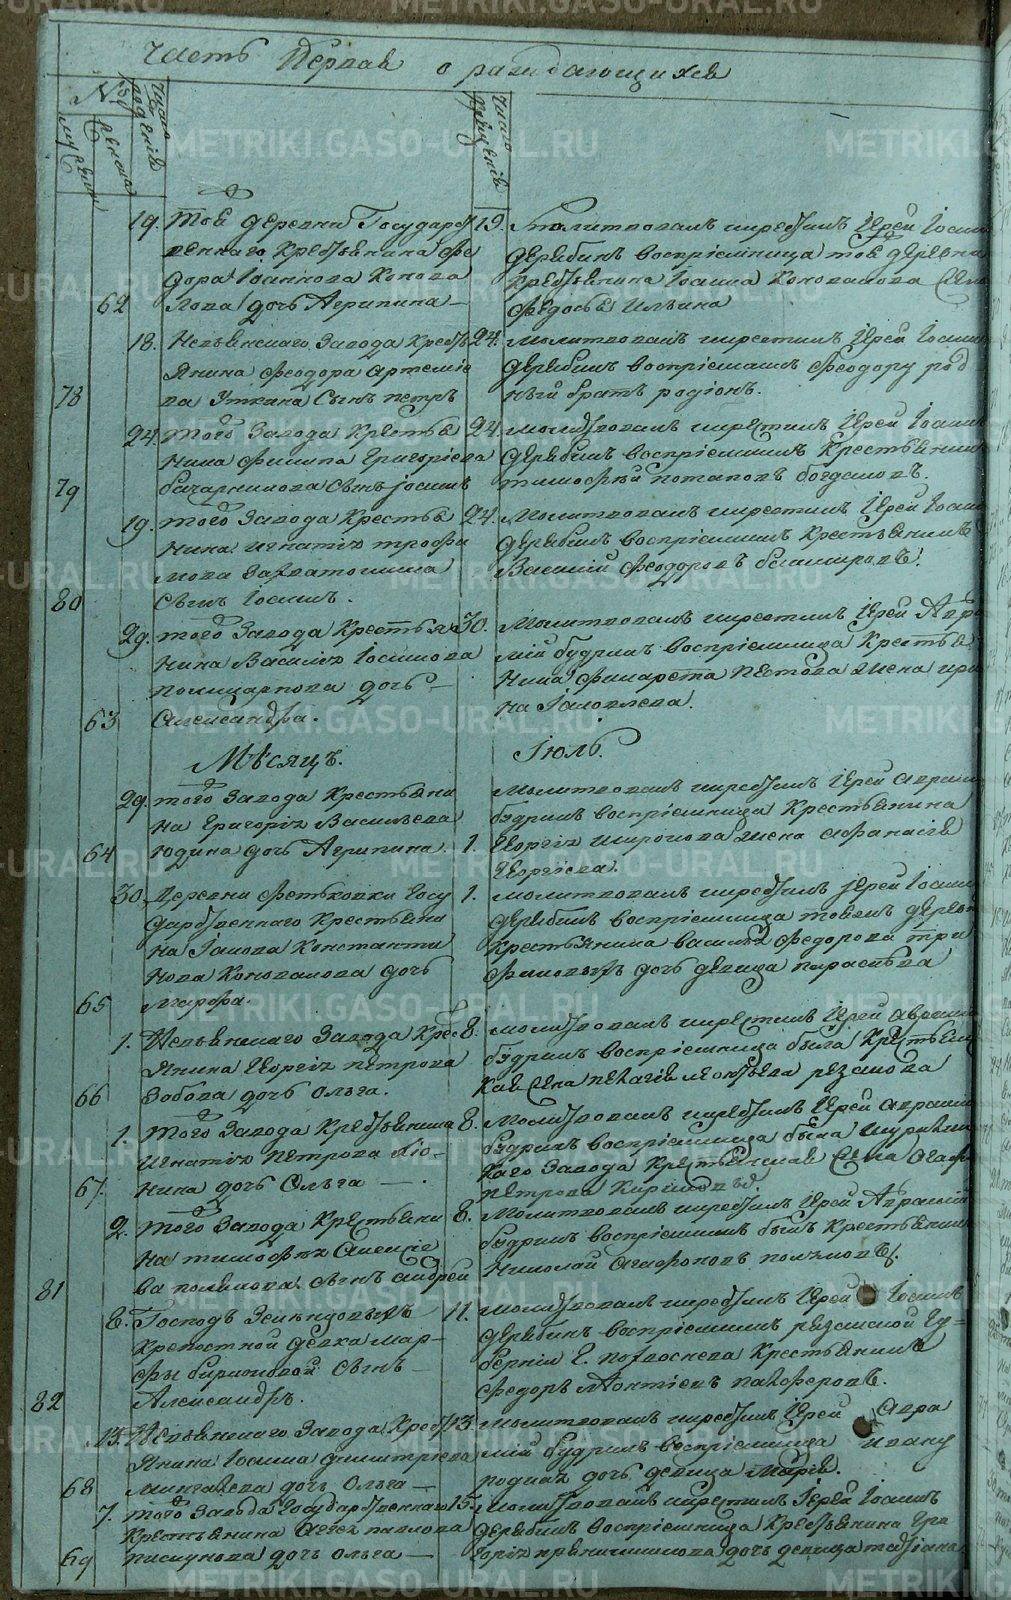 Часть Первая о раждающихся
№
муж. пола
женска
Число рожденія
Число крещенія
19. Той деревни Государст
веннаго Крестьянина Фе
дора Іоаннова Конова
62 лова дочь Агрипина
19. Молитвовалъ и крестилъ Іерей Іоаннъ
Дерябинъ воспріемница той деревни
Крестьянина Іоанна Коновалова
Федосья Ильина
18. Невьянскаго Завода Кресть
янина Феодора Артеміе
78 ва Уткина Сынъ петръ
24. Молитвовалъ и крестилъ Іерей Іоаннъ
Дерябинъ воспріемникъ Феодору род
ный братъ родіонъ.
24. того Завода Крестья
нина Филипа Григоріева
79 Сынъ Іоаннъ
24. молитвовалъ и крестилъ Іерей Іоаннъ
Дерябинъ воспріемникъ Крестьянинъ
тимофей потаповъ богдановъ.
19. того Завода Крестья
нина Игнатія трофи
мова Захватошина
80 Сынъ Іоаннъ.
24. Молитвовалъ и крестилъ Іерей Іоаннъ
Дерябинъ воспріемникъ Крестьянинъ
Василій Феодоровъ
29. того Завода Крестья
нина Василія Іоаннова
поликарпова дочь
63 Александра.
30. Молитвовалъ и крестилъ Іерей Авра
мій будринъ воспріемница Крестья
нина Филарета пестова жена ири
на Іаковлева.
Мѣсяцъ. Іюль.
29. того Завода Крестьяни
на Григорія Васильева
64 юдина дочь Агрипина.
Молитвовалъ и крестилъ Іерей аврамій
будринъ воспріемница Крестьянина
1. Георгія широкова жена афанасія
Георгіева.
30. Деревни фетьковки Госу
дарственнаго Крестьяни
на Іакова Константи
нова Коновалова дочь
65 Марфа.
1. молитвовалъ и крестилъ Іерей Іоаннъ
Дерябинъ воспріемница тойже деревни
Крестьянина василія Федорова три
фановыхъ дочь девица параскева
1. Невьянскаго Завода Крес
янина Георгія петрова
66 Зобова дочь Ольга.
8. молитвовалъ и крестилъ Іерей аврамій
будринъ воспріемница была Крестьянс
кая жена пелагія леонтьева резанова
1. того Завода Крестьянина
Игнатія петрова Лю-
67. нина дочь Ольга
8. Молитвовалъ и крестилъ Іерей аврамій
будринъ воспріемница была
каго Завода Крестьянская жена агаф
петрова
2. того Завода Крестьяни
на тимофея Алексіе
81 ва полякова сынъ андрей
8. Молитвовалъ и крестилъ Іерей Аврамій
будринъ воспріемникъ былъ Крестьянинъ
Николай Агафоновъ поляковъ.
8. Господъ
Крепостной девки мар-
фы бирюковой сынъ
82 Александръ.
11. молитвовалъ и крестилъ Іерей Іоаннъ
Дерябинъ воспріемникъ рязанской Гу-
берніи Крестьянинъ
Федоръ
13. Невьянскаго Завода Крест
янина Іоанна димитріева
68 дочь Ольга
13. Молитвовалъ и крестилъ Іерей Авра
мій будринъ воспріемница ивану
родная дочь девица Марія.
7. того Завода Государственнаго
Крестьянина павлова
69 пискунова дочь ольга
15. Молитвовалъ и крестилъ Іерей Іоаннъ
Дерябинъ воспріемница Крестьянина Гри
горія дочь девица татіана
METRIKI.GASO-URAL.RU